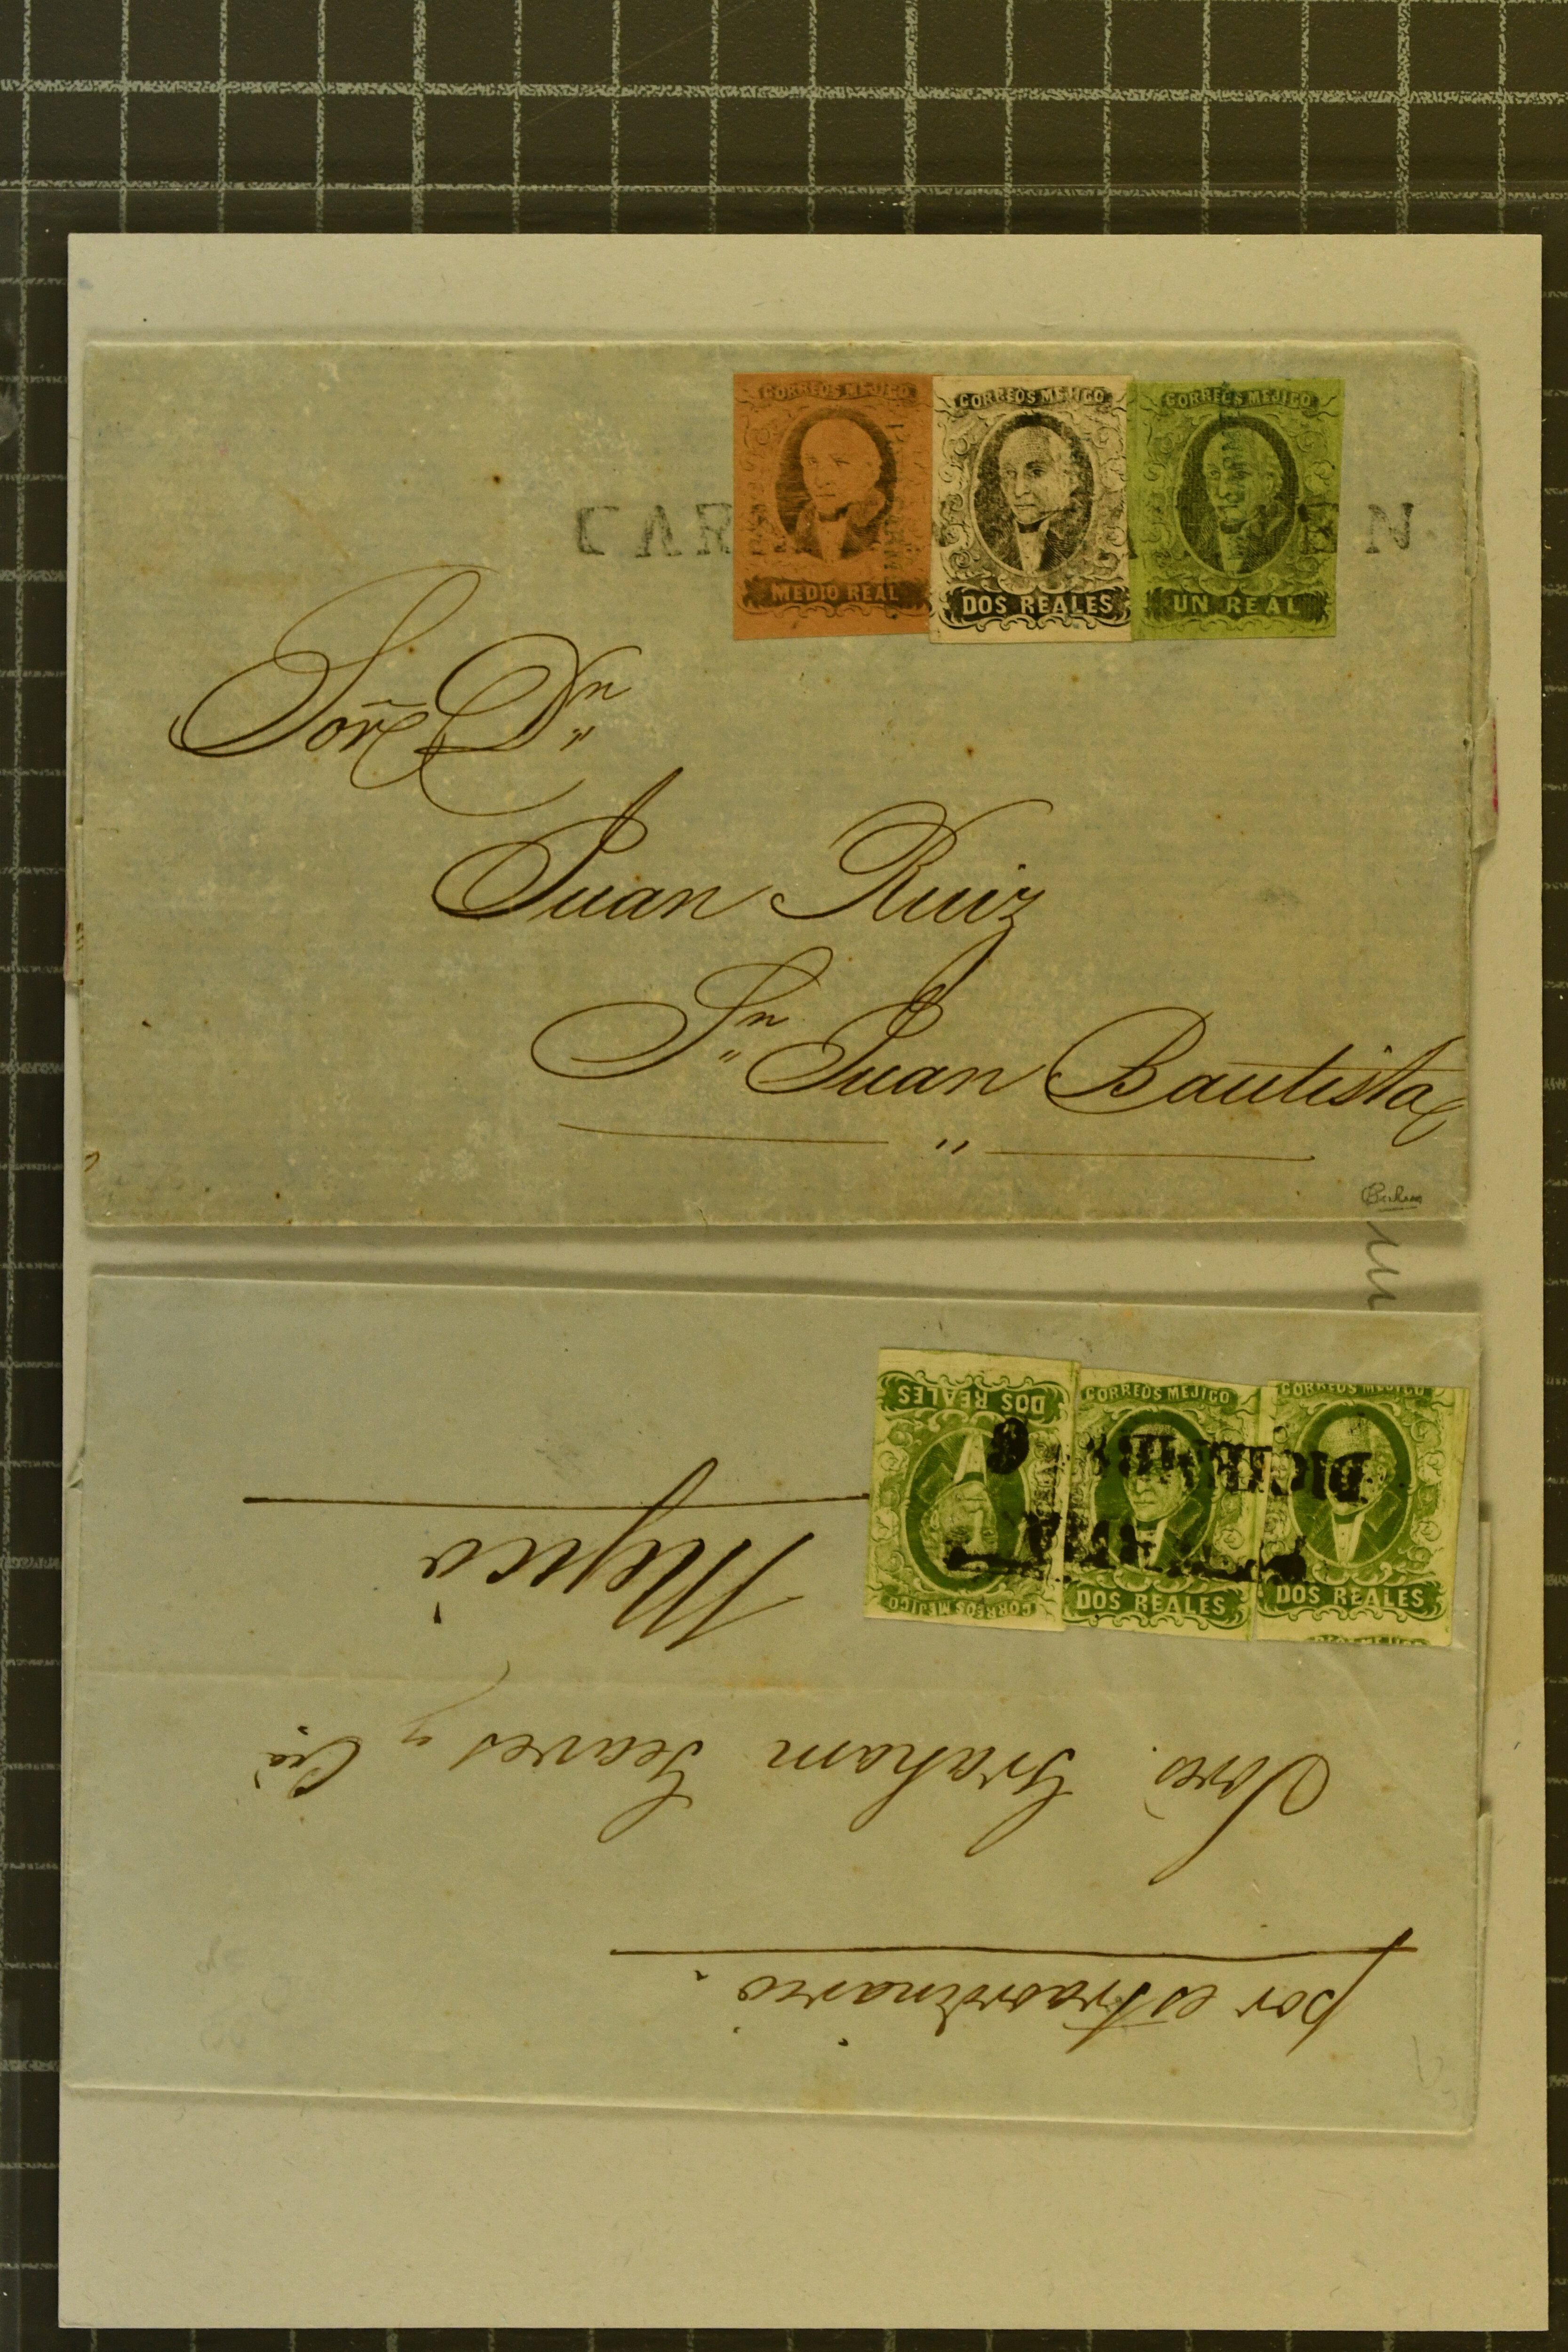 CORREOS MEJICO
MEDIO REAL
CORREOS MEJICO
DOS REALES
CORREOS MEJICO
UN REAL
CAR N
Sor Dn
Juan Ruiz
Sn Juan Bautista
DOS REALES
CORREOS MEJICO
CORREOS MEJICO
DOS REALES
CORREOS MEJICO
DOS REALES
DICIEMBRE 6
por estraordinario.
Sres. Graham Geaves y Ca
Mejico